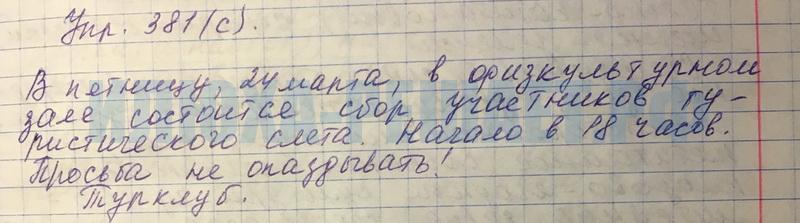 Упр. 381(с).
В пятницу, 24 марта, в физкультурном
зале состоится сбор участников ту-
ристического слета. Начало в 18 часов.
Просьба не опаздывать!
Турклуб.